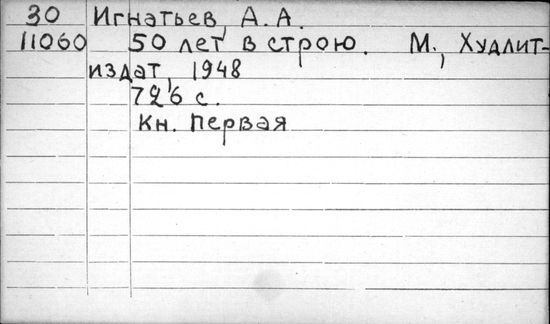 30 Игнатьев А. А.
11060 50 лет в строю. М., Худлит-
издат, 1948
726 с.
Кн. первая